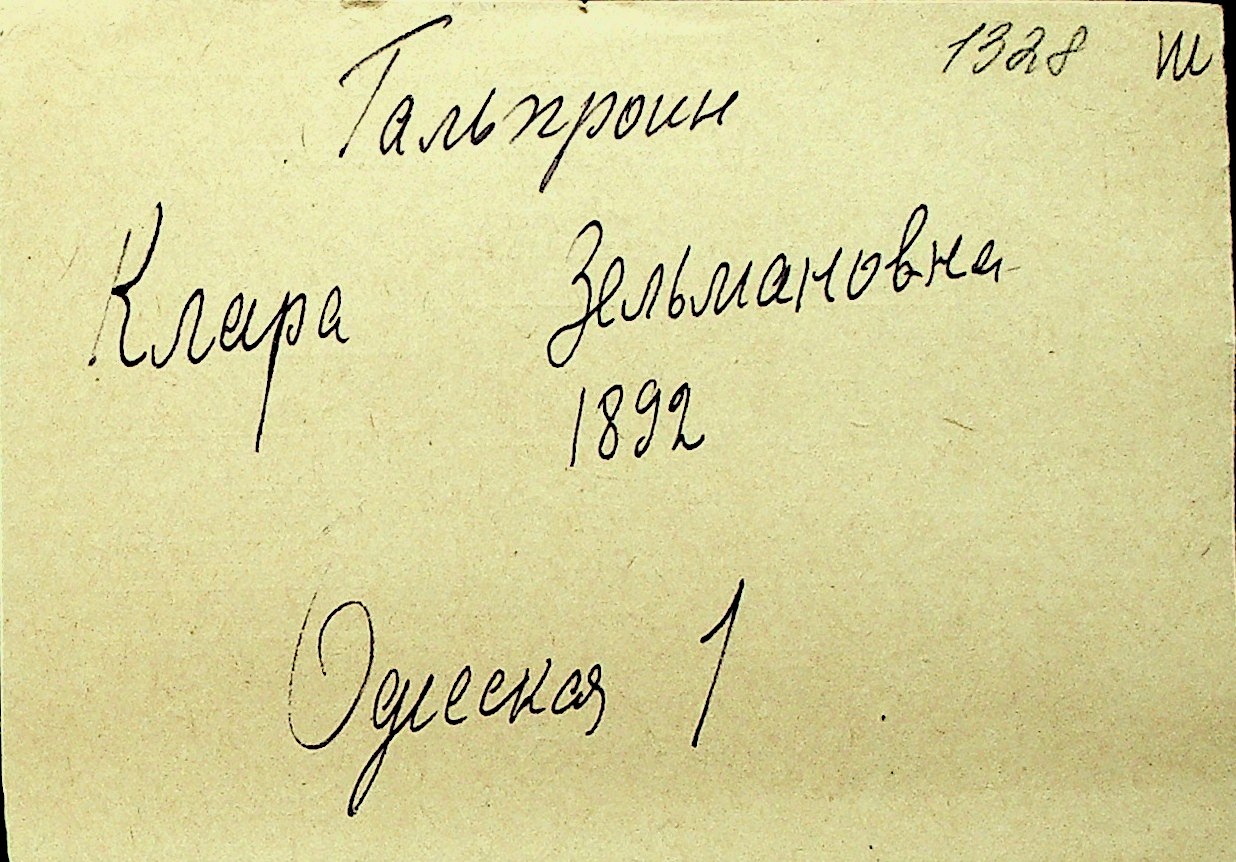 1328 Ш
Гальпроин
Клара Зельмановна
1892
Одесская 1